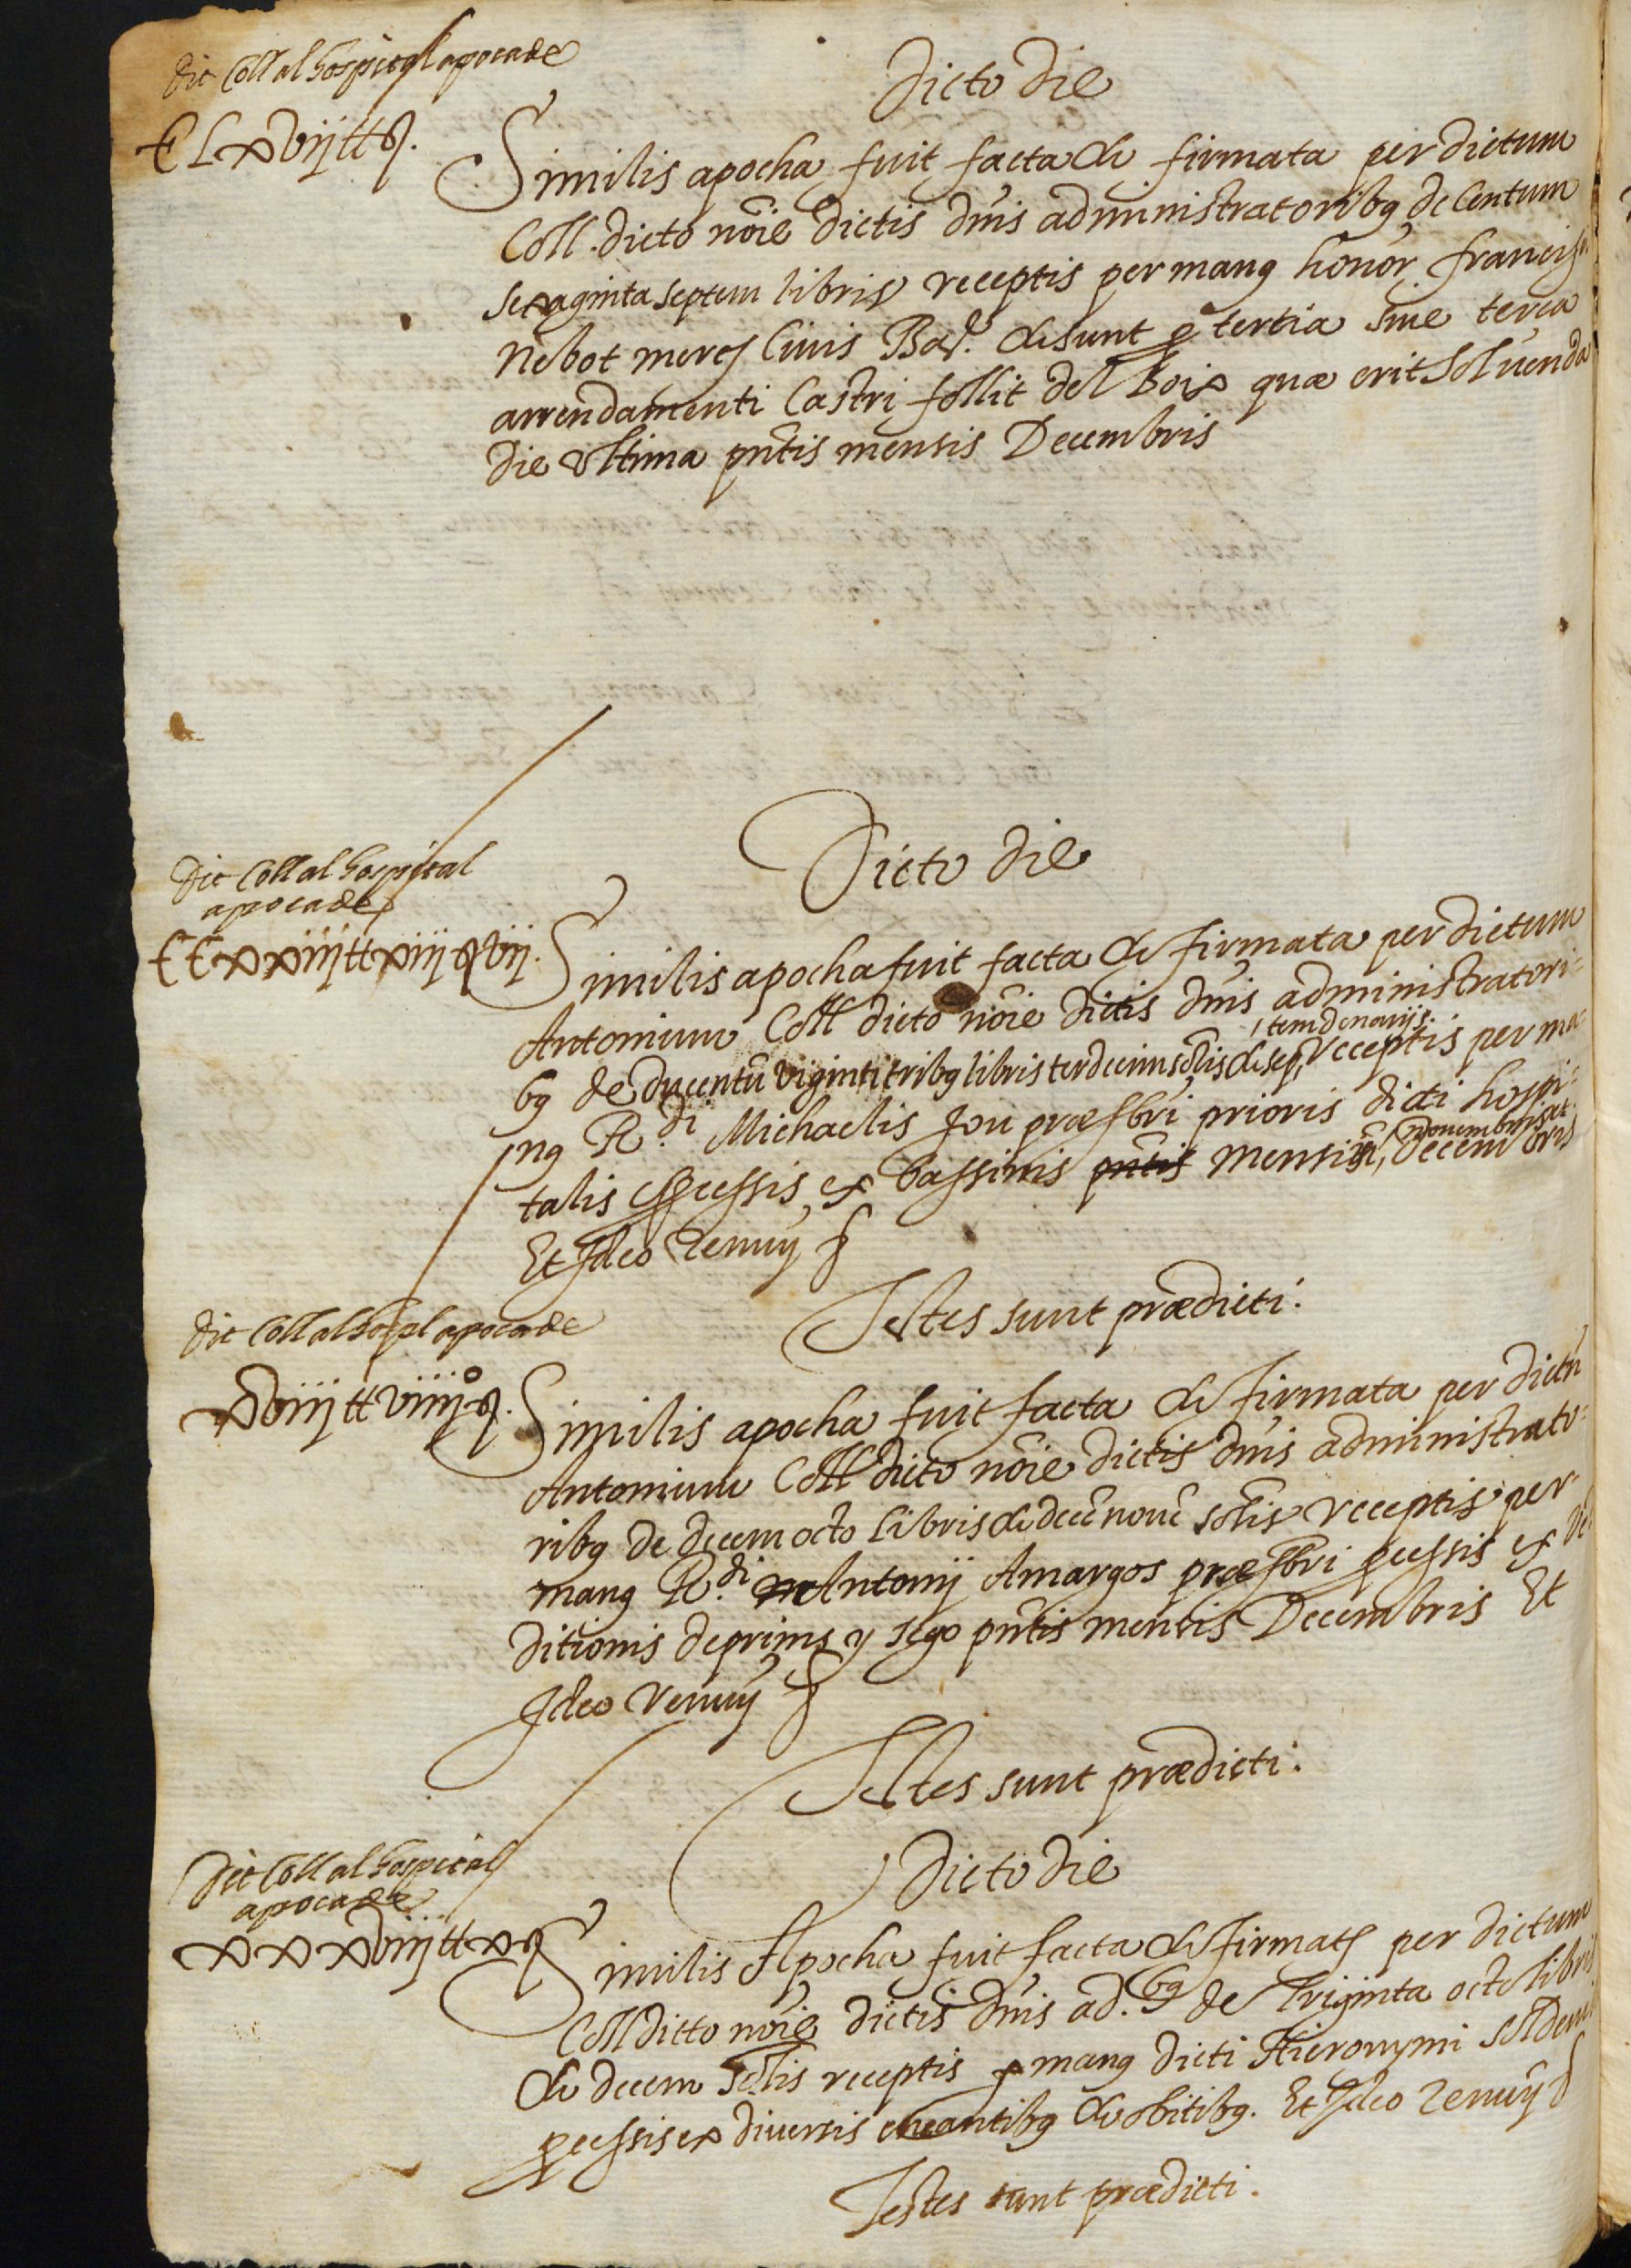 Dit Coll al hospital apoca de
CLxvij ll s.
Dicto die
Similis apocha fuit facta & firmata per dictum
Coll. dicto noĩe dictis dñis administratoribꝯ de Centum
sexaginta septem libris receptis per manꝯ honor. francisci
Nebot merc. Civis Bar. & sunt ꝑ tertia sive terça
arrendamenti Castri follit del Boix quæ erit solvenda
die ultima pñtis mensis Decembris
Dit Coll al hospital
apoca de
CCxxiij ll xiij s vij.
Dicto die
Similis apocha fuit facta & firmata per dictum
Antonium Coll dicto noĩe dictis dñis administratori=
bꝯ de ducentũ viginti tribꝯ libris terdecim solis & sep, tem denarijs. receptis per ma=
nꝯ R.di Michaelis Jou præsbri prioris dicti hospi=
talis ꝓcessis ex bassinis pñtis mensiũ, novembris et Decembris
Et Ideo renuij &
Testes sunt prædicti.
Dit Coll al hospl apoca de
xviij ll viiij s.
Similis apocha fuit facta & firmata per dictũ
Antonium Coll dicto noĩe dictis dñis administrato=
ribꝯ de decem octo libris & decẽ novẽ solis receptis per
manꝯ R.di Antonij Amargos præsbri ꝓcessis ex ve
ditionis de prims y sego pñtis mensis Decembris Et
Ideo renuij &
Testes sunt prædicti.
Dit Coll al hospital
apoca de
xxxviij ll x s
Dicto die
Similis Apocha fuit facta & firmata per dictum
Coll ditto noĩe dictis dñis ad.bꝯ de Triginta octo libris
& decem solis receptis ꝑ manꝯ dicti Hieronymi Soldevil
ꝓcessis ex diversis encantibꝯ & obitibꝯ. Et Ideo renuij &
Testes sunt prædicti.